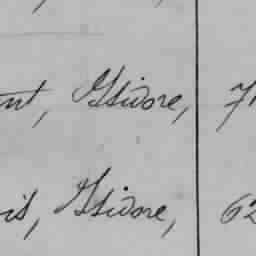 nt, Isidore, 7
is, Isidore, 62